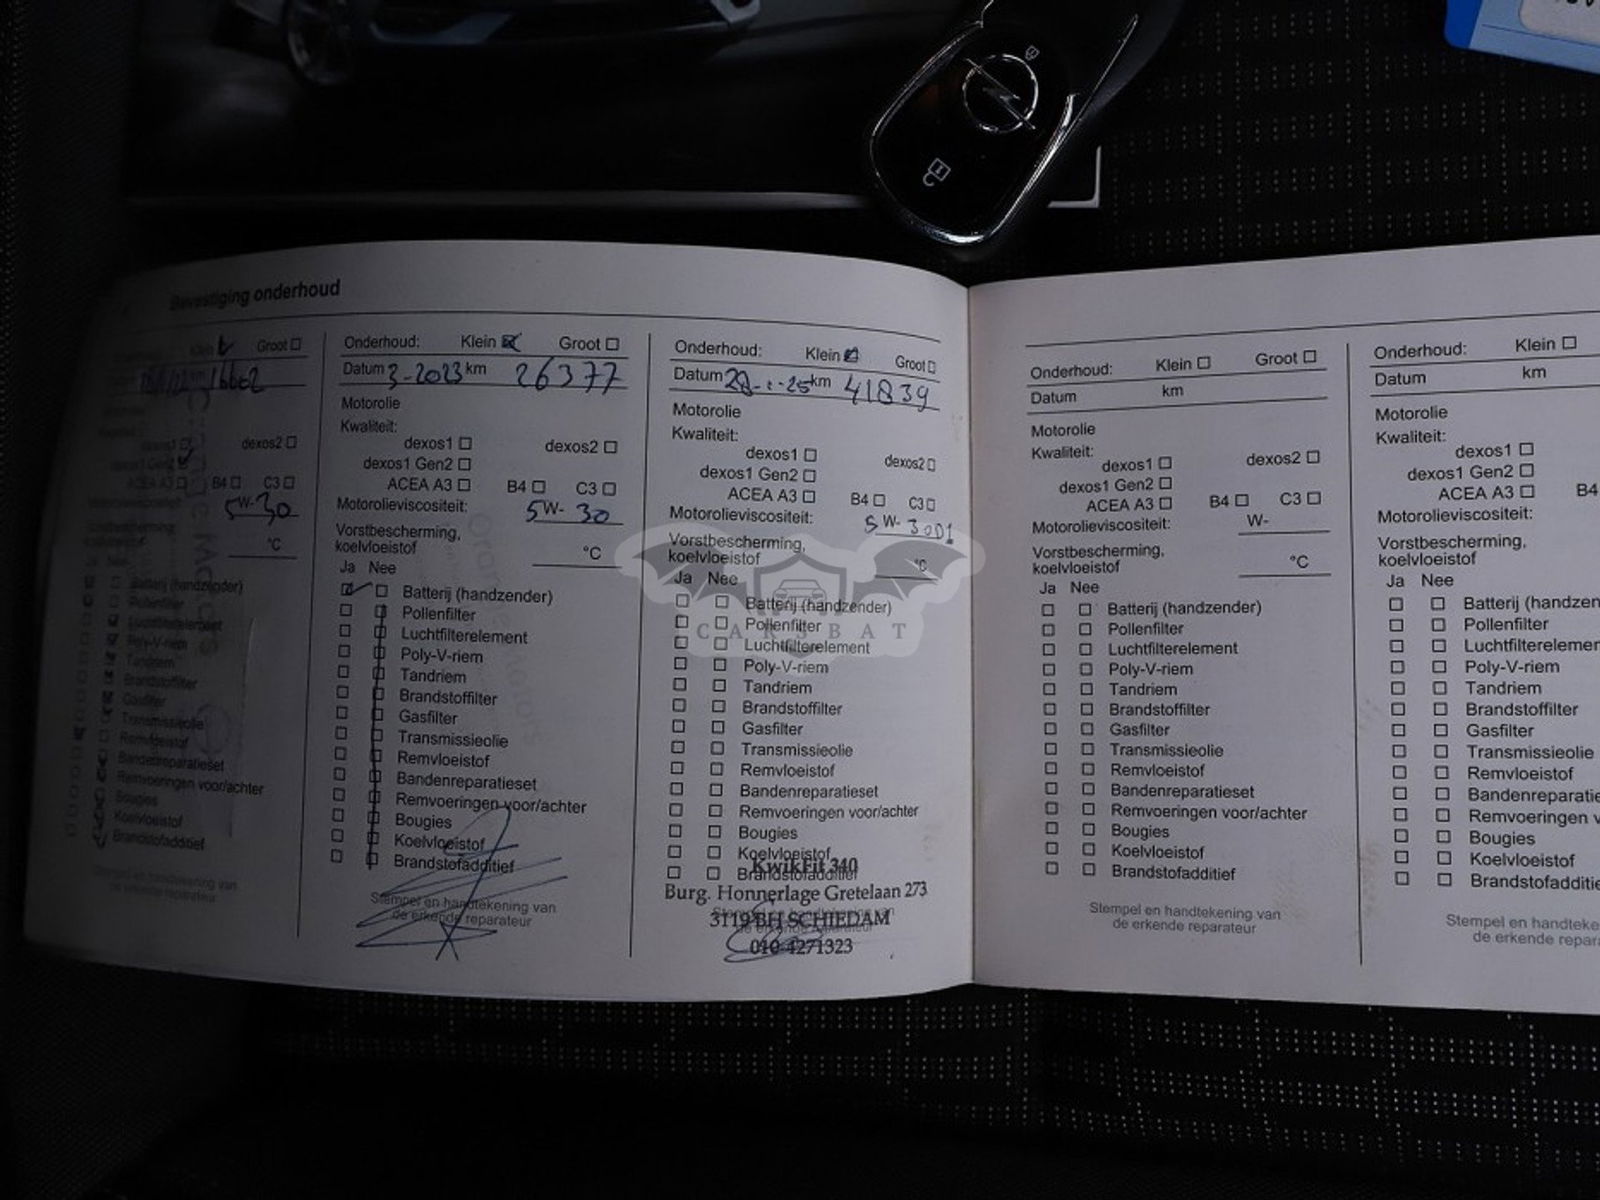 Bevestiging onderhoud
Klein Groot
16602
dexos1 dexos2
dexos1 Gen2
ACEA A3 B4 C3
Motorolieviscositeit: 5W-30
Vorstbescherming,
°C
Ja Nee
Batterij (handzender)
Pollenfilter
Luchtfilterelement
Poly-V-riem
Tandriem
Brandstoffilter
Gasfilter
Transmissieolie
Remvloeistof
Bandenreparatieset
Remvoeringen voor/achter
Bougies
Koelvloeistof
Brandstofadditief
Stempel en handtekening van
de erkende reparateur
Onderhoud: Klein Groot
Datum 3-2023 km 26377
Motorolie
Kwaliteit:
dexos1 dexos2
dexos1 Gen2
ACEA A3 B4 C3
Motorolieviscositeit: 5W-30
Vorstbescherming,
koelvloeistof °C
Ja Nee
Batterij (handzender)
Pollenfilter
Luchtfilterelement
Poly-V-riem
Tandriem
Brandstoffilter
Gasfilter
Transmissieolie
Remvloeistof
Bandenreparatieset
Remvoeringen voor/achter
Bougies
Koelvloeistof
Brandstofadditief
Stempel en handtekening van
de erkende reparateur
Onderhoud: Klein Groot
Datum km 41839
Motorolie
Kwaliteit:
dexos1 dexos2
dexos1 Gen2
ACEA A3 B4 C3
Motorolieviscositeit: 5W-30D1
Vorstbescherming,
koelvloeistof °C
Ja Nee
Batterij (handzender)
Pollenfilter
Luchtfilterelement
Poly-V-riem
Tandriem
Brandstoffilter
Gasfilter
Transmissieolie
Remvloeistof
Bandenreparatieset
Remvoeringen voor/achter
Bougies
Koelvloeistof
Brandstofadditief
KwikFit 340
Burg. Honnerlage Gretelaan 273
Stempel en handtekening van
3119 BH SCHIEDAM
de erkende reparateur
010-4271323
CARSBAT
Onderhoud: Klein Groot
Datum km
Motorolie
Kwaliteit:
dexos1 dexos2
dexos1 Gen2
ACEA A3 B4 C3
Motorolieviscositeit: W-
Vorstbescherming,
koelvloeistof °C
Ja Nee
Batterij (handzender)
Pollenfilter
Luchtfilterelement
Poly-V-riem
Tandriem
Brandstoffilter
Gasfilter
Transmissieolie
Remvloeistof
Bandenreparatieset
Remvoeringen voor/achter
Bougies
Koelvloeistof
Brandstofadditief
Stempel en handtekening van
de erkende reparateur
Onderhoud: Klein
Datum km
Motorolie
Kwaliteit:
dexos1
dexos1 Gen2
ACEA A3 B4
Motorolieviscositeit:
Vorstbescherming,
koelvloeistof
Ja Nee
Batterij (handzen
Pollenfilter
Luchtfilterelemen
Poly-V-riem
Tandriem
Brandstoffilter
Gasfilter
Transmissieolie
Remvloeistof
Bandenreparatie
Remvoeringen v
Bougies
Koelvloeistof
Brandstofadditie
Stempel en handteke
de erkende repara